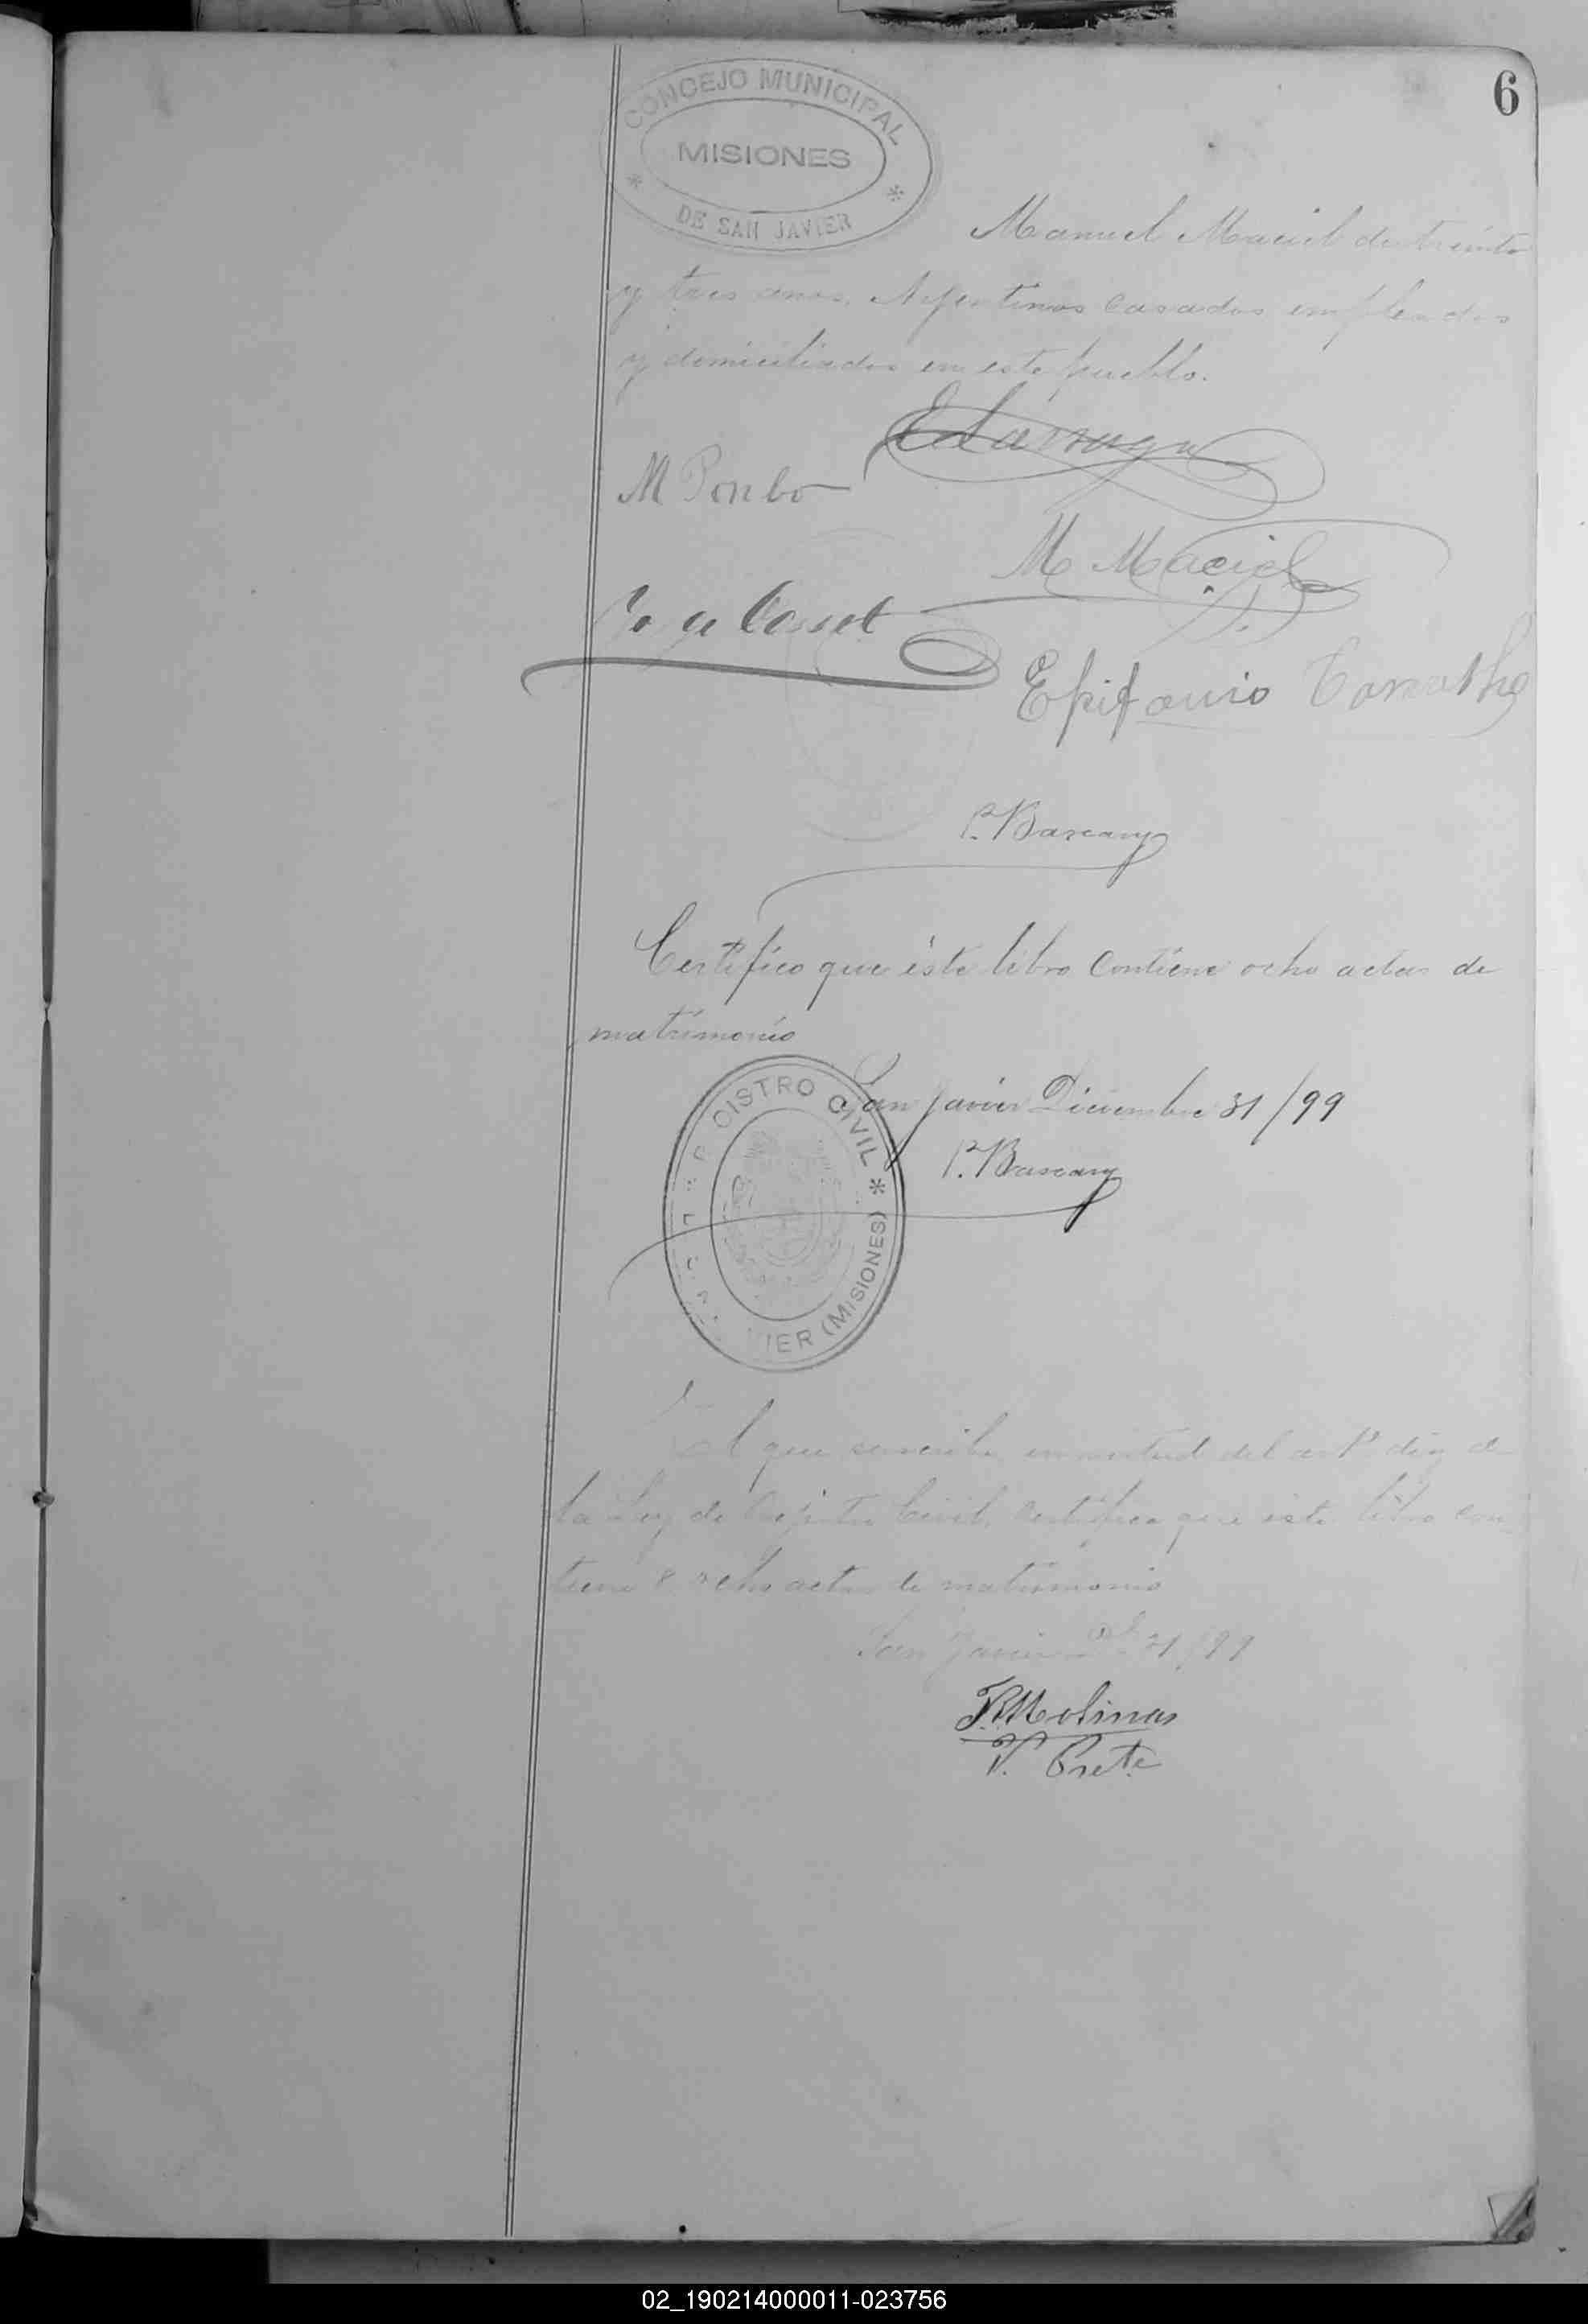 6
CONCEJO MUNICIPAL
MISIONES
DE SAN JAVIER
Manuel Maciel de treinta
y tres anos. Arjentinos casados empleados
y domiciliados en este pueblo.
M Ponbo
M Maciel
Epifanio
P. Bascary
Certifico que éste libro contiene ocho actas de
matrimonio
San Javier Diciembre 31/99
P. Bascary
GISTRO CIVIL
VIER (MISIONES)
El que suscribe en virtud del artº diez de
la Ley de Rejistro Civil, certifica que este libro con
tiene 8 ocho actas de matrimonio
San Javier Dbre 31/99
Molinas
V. Prete
02_190214000011-023756